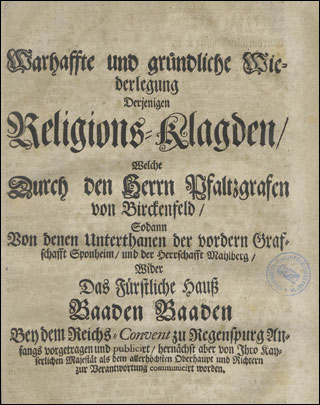 Warhaffte und gründliche Wie-
derlegung
Derjenigen
Religions-Klagden/
Welche
Durch den Herrn Pfaltzgrafen
von Birckenfeld/
Sodann
Von denen Unterthanen der vordern Graf-
schafft Sponheim/ und der Herrschafft Mahlberg/
Wider
Das Fürstliche Hauß
Baaden Baaden
Bey dem Reichs-Convent zu Regenspurg An-
fangs vorgetragen und publicirt/ hernächst aber von Ihro Kay-
serlichen Majestät als dem allerhöchsten Oberhaupt und Richtern
zur Verantwortung communicirt worden.